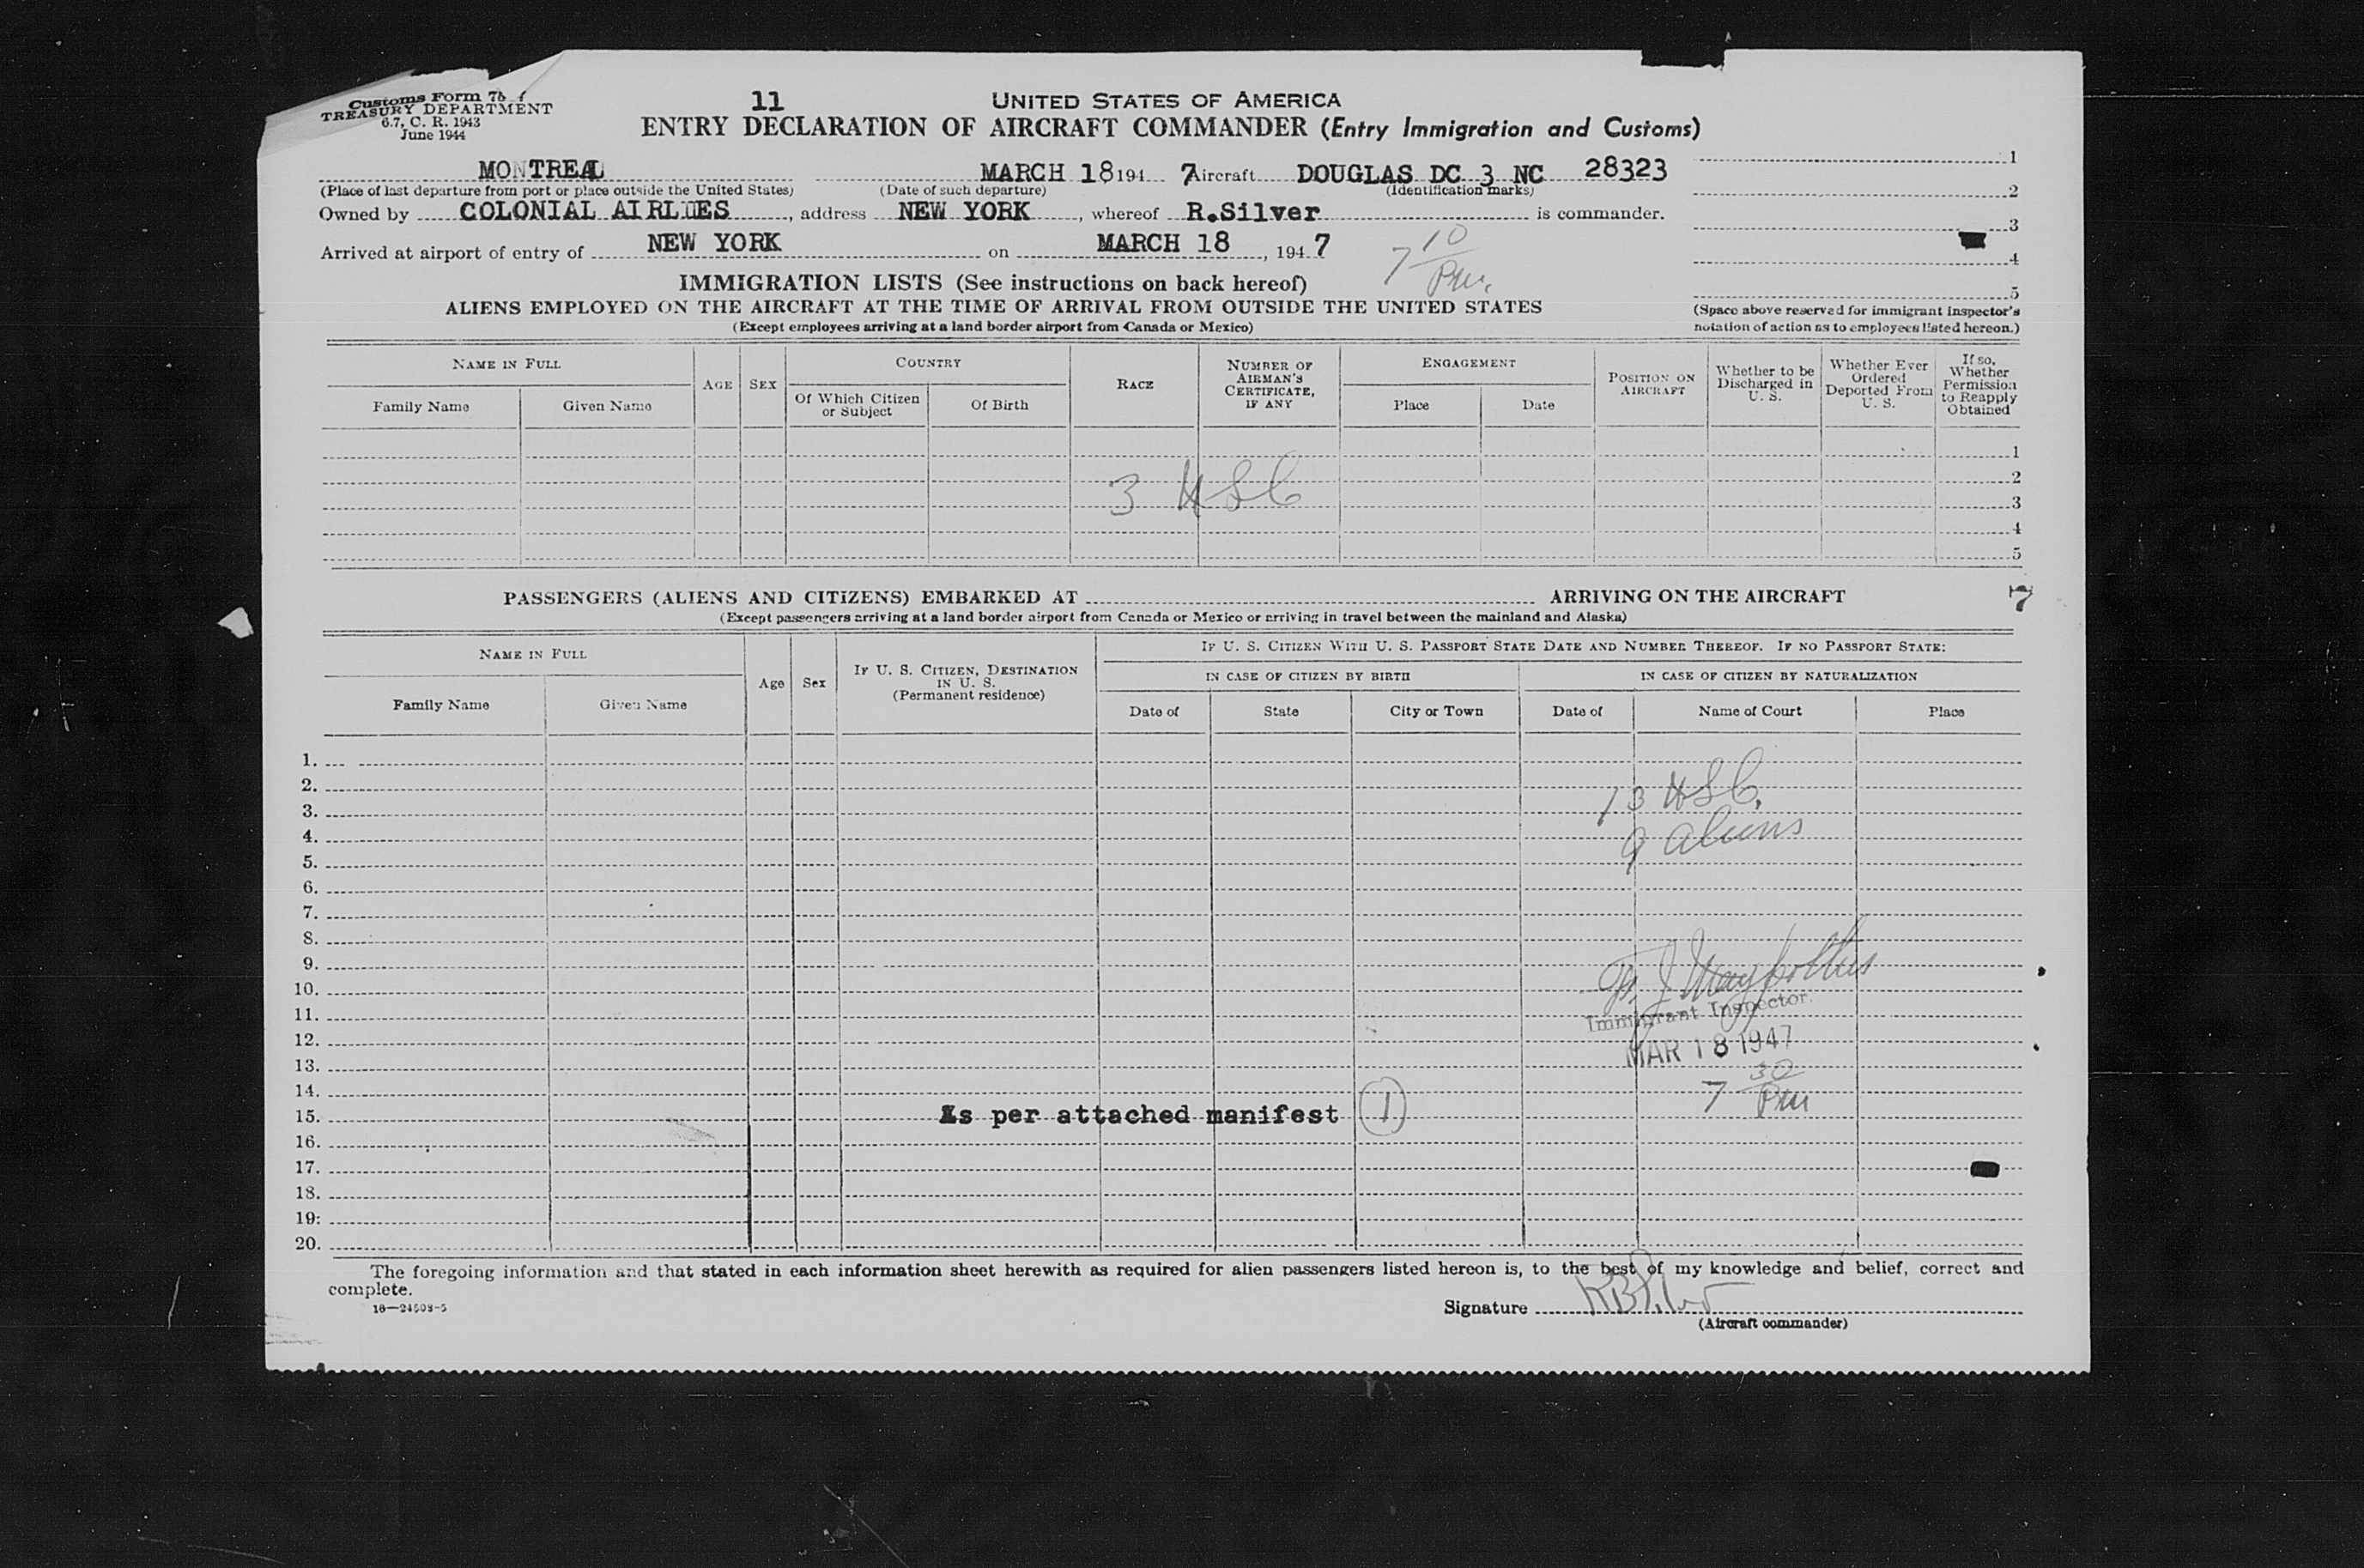 Customs Form 75
TREASURY DEPARTMENT
6.7, C. R. 1943
June 1944
11
UNITED STATES OF AMERICA
ENTRY DECLARATION OF AIRCRAFT COMMANDER (Entry Immigration and Customs)
MONTREAL MARCH 18 194 7 Aircraft DOUGLAS DC 3 NC 28323
(Place of last departure from port or place outside the United States) (Date of such departure) (Identification marks)
Owned by COLONIAL AIRLIES, address NEW YORK, whereof R.Silver is commander.
Arrived at airport of entry of NEW YORK on MARCH 18, 194 7
7 10 Pm.
1
2
3
4
5
(Space above reserved for immigrant inspector's
notation of action as to employees listed hereon.)
IMMIGRATION LISTS (See instructions on back hereof)
ALIENS EMPLOYED ON THE AIRCRAFT AT THE TIME OF ARRIVAL FROM OUTSIDE THE UNITED STATES
(Except employees arriving at a land border airport from Canada or Mexico)
NAME IN FULL
Family Name
Given Name
AGE
SEX
COUNTRY
Of Which Citizen
or Subject
Of Birth
RACE
NUMBER OF
AIRMAN'S
CERTIFICATE,
IF ANY
ENGAGEMENT
Place
Date
POSITION ON
AIRCRAFT
Whether to be
Discharged in
U. S.
Whether Ever
Ordered
Deported From
U. S.
If so,
Whether
Permission
to Reapply
Obtained
1
2
3 USC
3
4
5
PASSENGERS (ALIENS AND CITIZENS) EMBARKED AT ARRIVING ON THE AIRCRAFT
7
(Except passengers arriving at a land border airport from Canada or Mexico or arriving in travel between the mainland and Alaska)
NAME IN FULL
Family Name
Given Name
Age
Sex
IF U. S. CITIZEN, DESTINATION
IN U. S.
(Permanent residence)
IF U. S. CITIZEN WITH U. S. PASSPORT STATE DATE AND NUMBER THEREOF. IF NO PASSPORT STATE:
IN CASE OF CITIZEN BY BIRTH
Date of
State
City or Town
IN CASE OF CITIZEN BY NATURALIZATION
Date of
Name of Court
Place
1.
2.
13 USC,
3.
4.
9 aliens
5.
6.
7.
8.
9.
10.
11.
Immigrant Inspector.
12.
MAR 18 1947
13.
14.
7 30 Pm
15. As per attached manifest 1
16.
17.
18.
19.
20.
The foregoing information and that stated in each information sheet herewith as required for alien passengers listed hereon is, to the best of my knowledge and belief, correct and
complete.
16—24508-5
Signature R B Silver
(Aircraft commander)